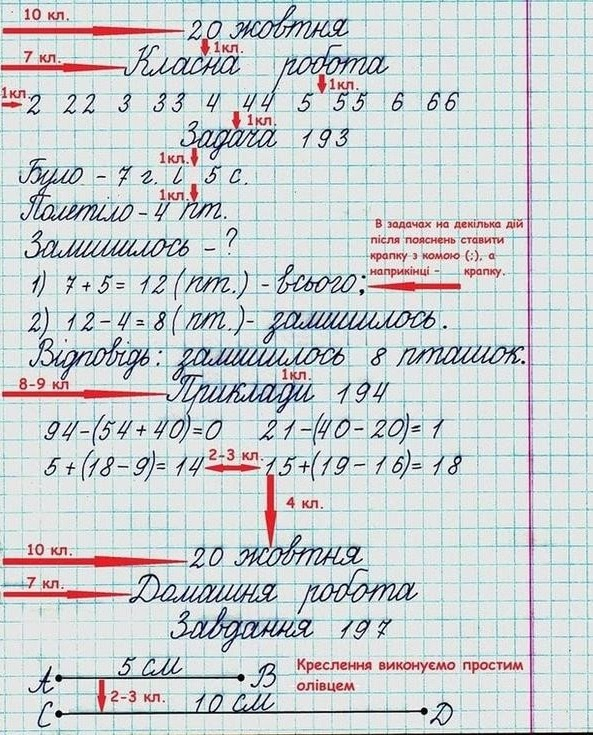 10 кл. 20 жовтня
1кл.
7 кл. Класна робота
1кл.
1кл. 2 22 3 33 4 44 5 55 6 66
1кл.
Задача 193
1кл.
Було – 7 г. і 5 с.
1кл.
Полетіло – 4 пт.
Залишилось – ?
В задачах на декілька дій
після пояснень ставити
крапку з комою (;), а
наприкінці – крапку.
1) 7 + 5 = 12 (пт.) – всього;
2) 12 – 4 = 8 (пт.) – залишилось.
Відповідь: залишилось 8 пташок.
1кл.
8-9 кл Приклади 194
94–(54+40)=0 21–(40–20)=1
5+(18–9)=14 2-3 кл. 15+(19–16)=18
4 кл.
10 кл. 20 жовтня
7 кл. Домашня робота
Завдання 197
5 см
A B
Креслення виконуємо простим
олівцем
2-3 кл. 10 см
C D